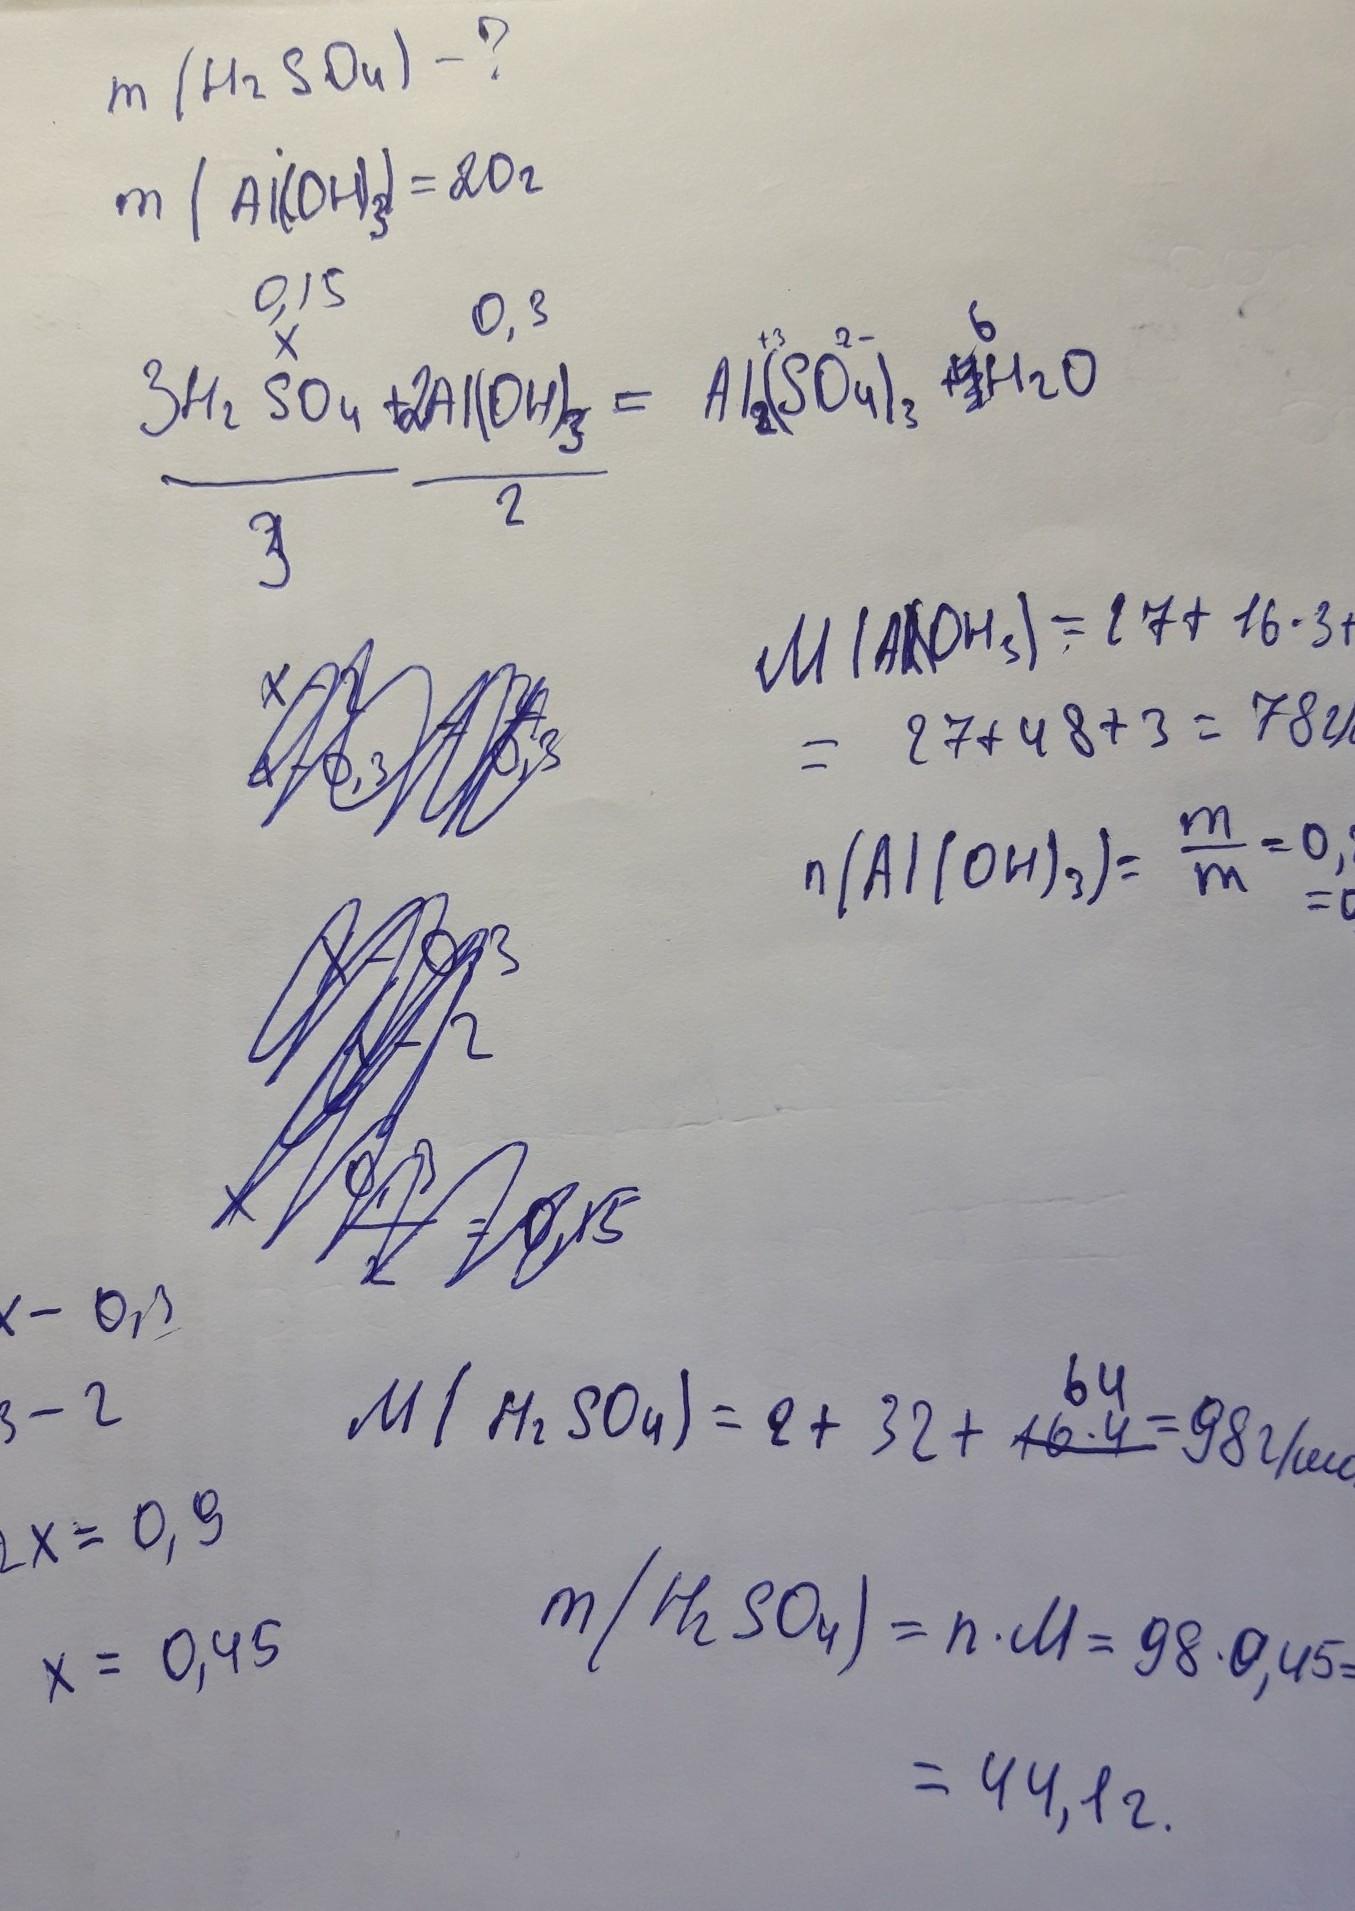 m(H₂SO₄) - ?
m(Al(OH)₃) = 20г
0,15 0,3
x 6
3H₂SO₄ + 2Al(OH)₃ = Al₂⁺³(SO₄²⁻)₃ + H₂O
3 2
M(Al(OH₃) = 27 + 16·3 +
= 27 + 48 + 3 = 78 г/
n(Al(OH)₃) = m/m = 0,
= 0
x - 0,3
2
x 0,3/2 = 0,15
x - 0,3
3 - 2
2x = 0,9
x = 0,45
64
M(H₂SO₄) = 2 + 32 + 16·4 = 98 г/мо
m(H₂SO₄) = n·M = 98·0,45 =
= 44,1 г.